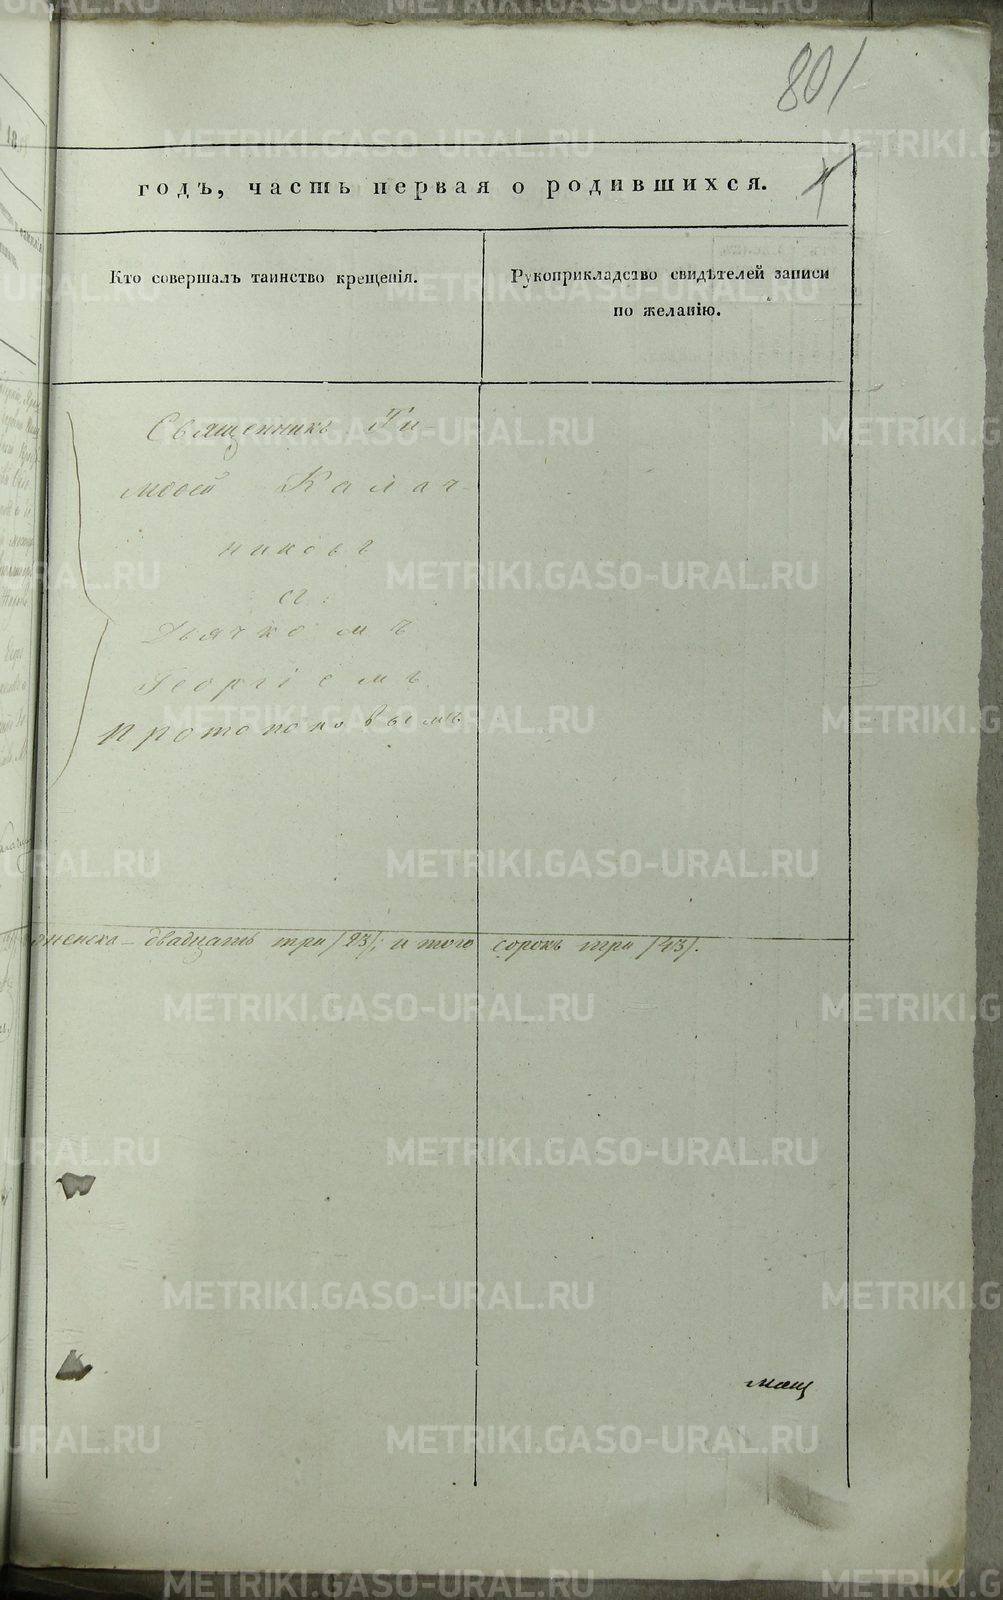 801
годъ, часть первая о родившихся.
Кто совершалъ таинство крещенія.
Рукоприкладство свидѣтелей записи
по желанію.
Священникъ Ти-
моѳей Калач-
никовъ
съ
Дьячкомъ
Георгіемъ
Протопоповымъ
женска – двадцать три /23/; и того сорокъ три /43/.
METRIKI.GASO-URAL.RU